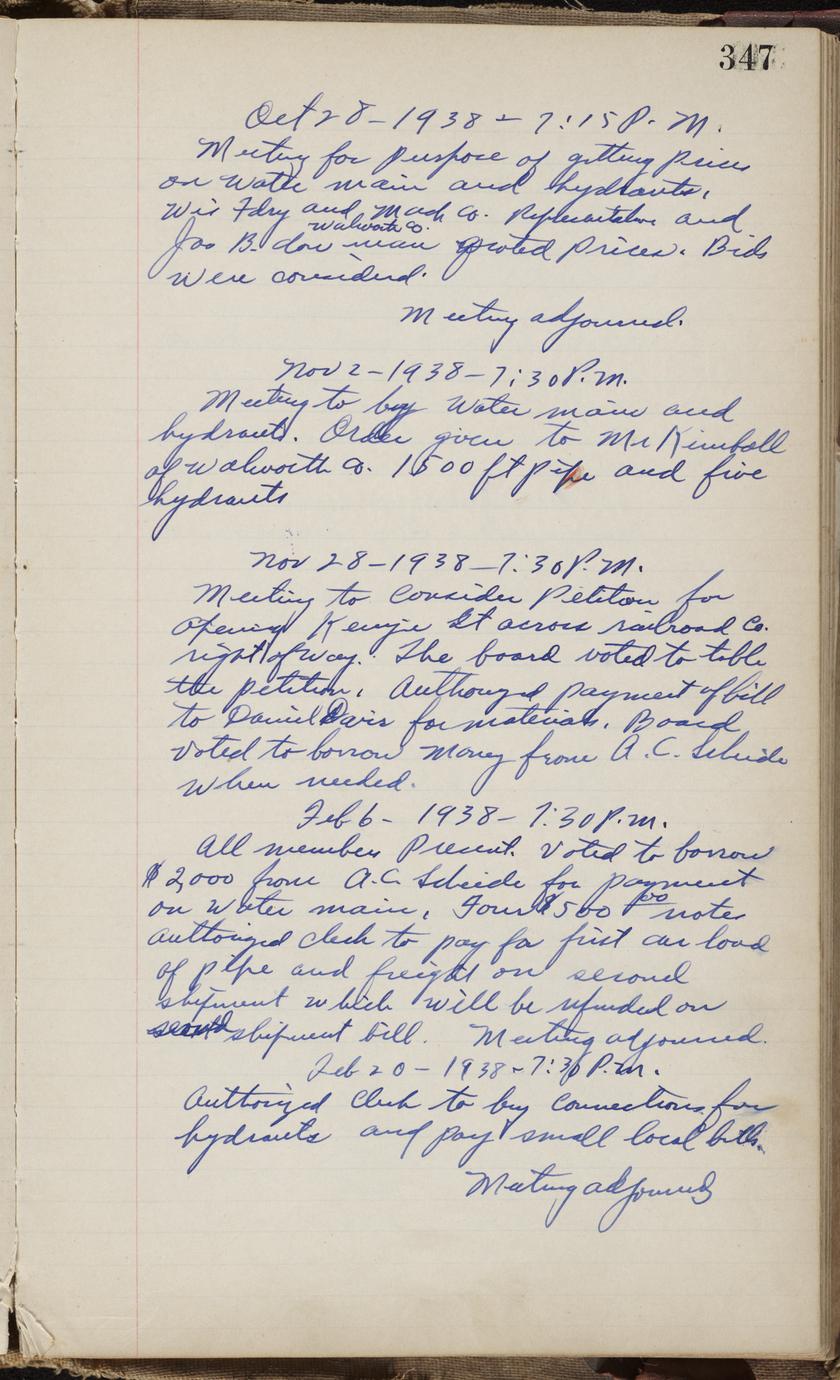 347
Oct 28 - 1938 - 7:15 P. M.
Meeting for purpose of getting prices
on water main and hydrants.
Wis Fdry and Mach Co. Representative and
Walworth Co.
Jas B. Clow man quoted prices. Bids
were considered.
Meeting adjourned.
Nov 2 - 1938 - 7:30 P.M.
Meeting to buy water main and
hydrants. Order given to Mr Kimball
of Walworth Co. 1500 ft pipe and five
hydrants
Nov 28 - 1938 - 7:30 P.M.
Meeting to consider Petition for
opening St across railroad Co.
right of way. The board voted to table
the petition. Authorized payment of bill
to Daniel Davis for materials. Board
voted to borrow money from A. C. Scheide
when needed.
Feb 6 - 1938 - 7:30 P.M.
All members Present. Voted to borrow
$2,000 from A.C. Scheide for payment
on water main. Four $500 00 notes
authorized clerk to pay for first car load
of pipe and freight on second
shipment which will be refunded on
shipment bill. Meeting adjourned.
Feb 20 - 1938 - 7:30 P.M.
Authorized clerk to buy connections for
hydrants and pay small local bills.
Meeting adjourned